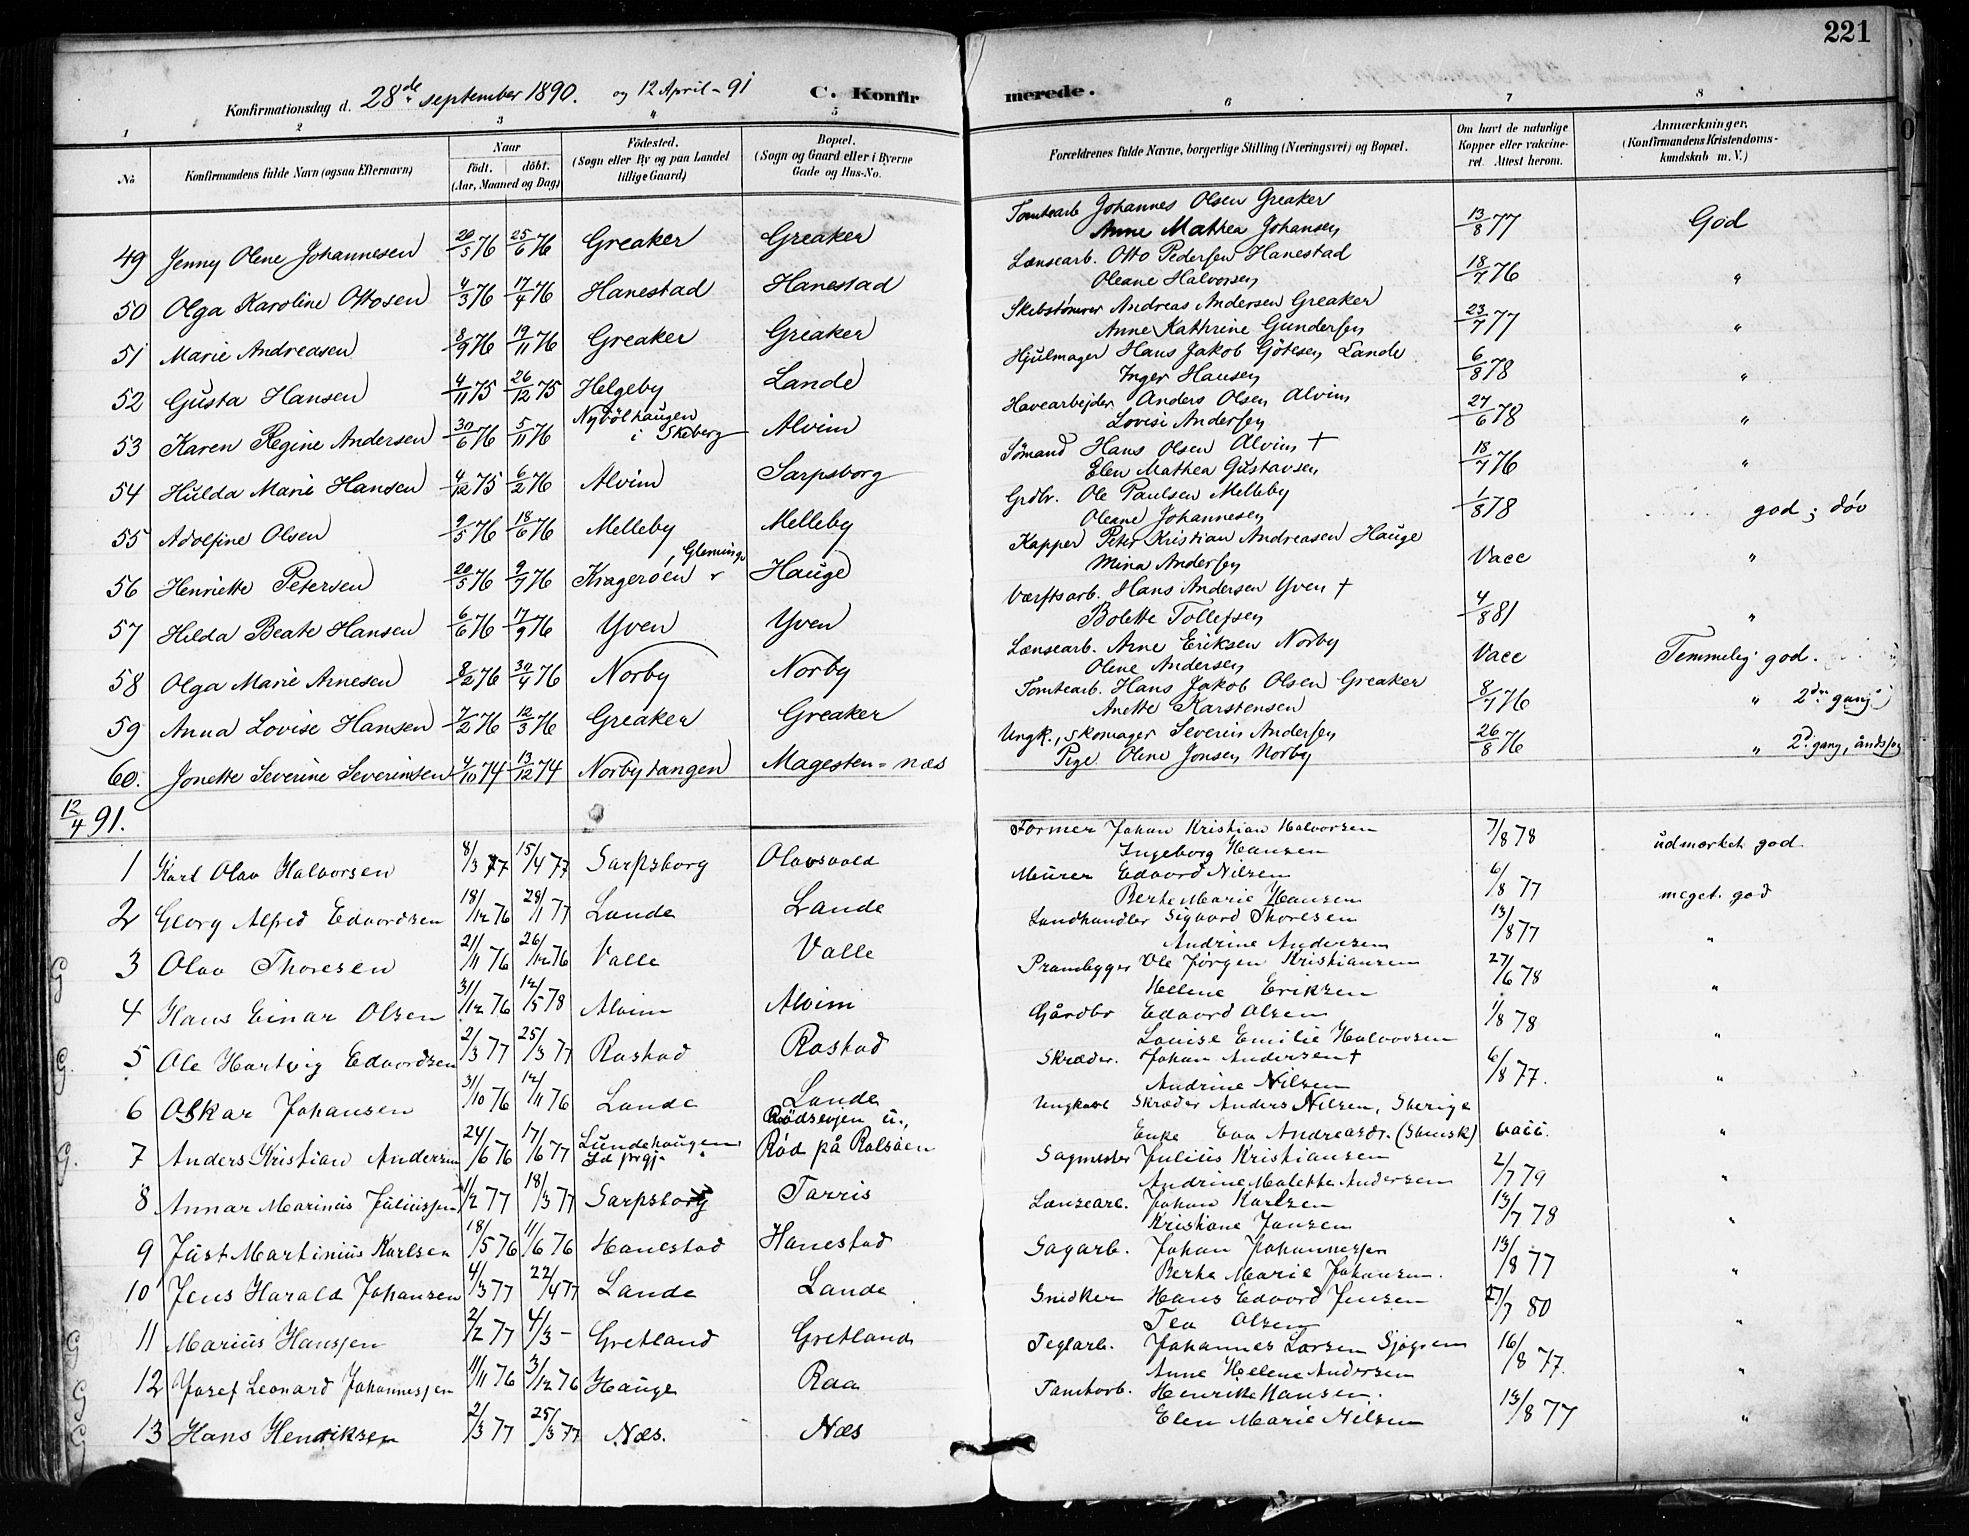 221
Konfirmationsdag d. 28de september 1890. og 12 April - 91 C. Konfirmerede.
1 2 3 4 5 6 7 8
No Konfirmandens fulde Navn (ogsaa Efternavn) Naar født. døbt. (Aar, Maaned og Dag) Fødested. (Sogn eller By og paa Landet tillige Gaard) Bopæl. (Sogn og Gaard eller i Byerne Gade og Hus-No. Forældrenes fulde Navne, borgerlige Stilling (Næringsvei) og Bopæl. Om havt de naturlige Kopper eller vakcineret. Attest herom. Anmærkninger. (Konfirmandens Kristendomskundskab m. V.)
49 Jenny Olene Johannesen 20/5 76 25/6 76 Greaker Greaker Tomtearb Johannes Olsen Greaker 13/8 77 God
Anne Mathea Johansen
50 Olga Karoline Ottosen 4/3 76 17/4 76 Hanestad Hanestad Lænsearb. Otto Pedersen Hanestad 18/7 76 "
Oleane Halvorsen
51 Marie Andreasen 8/9 76 19/11 76 Greaker Greaker Skibstømrer Andreas Andersen Greaker 23/7 77 "
Anne Kathrine Gundersen
52 Gusta Hansen 4/11 75 26/12 75 Helgeby Lande Hjulmager Hans Jakob Götesen Lande 6/8 78 "
Inger Hansen
53 Karen Regine Andersen 30/6 76 5/11 76 Nybölhaugen i Skeberg Alvim Havearbejder Anders Olsen Alvim 27/6 78 "
Lovise Andersen
54 Hulda Marie Hansen 4/12 75 6/2 76 Alvim Sarpsborg Sömand Hans Olsen Alvim † 18/7 76 "
Elen Mathea Gustavsen
55 Adolfine Olsen 9/5 76 18/6 76 Melleby Melleby Grdbr. Ole Paulsen Melleby 1/8 78 god; døv
Oleane Johannesen
56 Henriette Petersen 20/5 76 9/7 76 Kragerøen, Glemminge Hauge Kapper Peter Kristian Andreasen Hauge Vacc "
Mina Andersen
57 Hilda Beate Hansen 6/6 76 17/9 76 Yven Yven Værftsarb. Hans Andersen Yven † 4/8 81 "
Bolette Tollefsen
58 Olga Marie Arnesen 8/2 76 30/4 76 Norby Norby Lænsearb. Arne Eriksen Norby Vacc Temmelig god.
Olene Andersen
59 Anna Lovise Hansen 7/2 76 12/3 76 Greaker Greaker Tomtearb. Hans Jakob Olsen Greaker 8/7 76 " 2den gang
Anette Karstensen
60. Jonette Severine Severinsen 4/10 74 13/12 74 Norbytangen Magesten - næs Ungk., Skomager Severin Andersen 26/8 76 " 2d. gang, åndssv
Pige Oline Jonsen Norby
12/4 91.
1 Karl Olav Halvorsen 8/3 77 15/4 77 Sarpsborg Olavsvold Former Johan Kristian Halvorsen 7/8 78 udmærket god.
Ingeborg Hansen
2 Georg Alfred Edvardsen 18/12 76 28/1 77 Lande Lande Murer Edvard Nilsen 6/8 77 meget god
Berte Marie Hansen
3 Olav Thoresen 21/11 76 26/12 76 Valle Valle Landhandler Sigvard Thoresen 13/8 77 "
Andrine Andersen
G 4 Hans Einar Olsen 31/12 76 12/5 78 Alvim Alvim Prambygger Ole Jørgen Kristiansen 27/6 78 "
Helene Eriksen
5 Ole Hartvig Edvardsen 2/3 77 25/3 77 Rostad Rostad Gårdbr Edvard Olsen 1/8 78 "
Louise Emilie Halvorsen
G. 6 Oskar Johansen 31/10 76 12/11 76 Lande Lande Skræder. Johan Andersen † 6/8 77. "
Andrine Nilsen
G. 7 Anders Kristian Andersen 24/6 76 17/6 77 Lundehaugen Id prgj. Rødsvjen u., Rød på Rolsøen Ungkarl Skræder Anders Nilsen, Sverige vacc. "
Enke Eva Andreasdr. (Svensk)
8 Annar Marinus Juliussen 1/2 77 18/3 77 Sarpsborg Tarris Sagmester Julius Kristiansen 2/7 79 "
Andrine Malette Andersen
9 Just Martinius Karlsen 18/5 76 11/6 76 Hanestad Hanestad Lænsearb. Johan Karlsen 13/7 78 "
Kristiane Jansen
10 Jens Harald Johansen 4/3 77 22/4 77 Lande Lande Sagarb. Johan Johannessen 13/8 77 "
Berte Marie Johansen.
G 11 Marius Hanssen 2/2 77 4/3 - Gretland Gretland Snedker Hans Edvard Jensen 27/7 80 "
Tea Olsen
G 12 Josef Leonard Johannessen 11/11 76 3/12 76 Hauge Raa Teglarb. Johannes Larsen Sjøgren 16/8 77. "
Anne Helene Andersen
G 13 Hans Henriksen 2/3 77 25/3 77 Næs. Næs Tomtarb. Henrik Hansen. 13/8 77 "
Elen Marie Nilsen